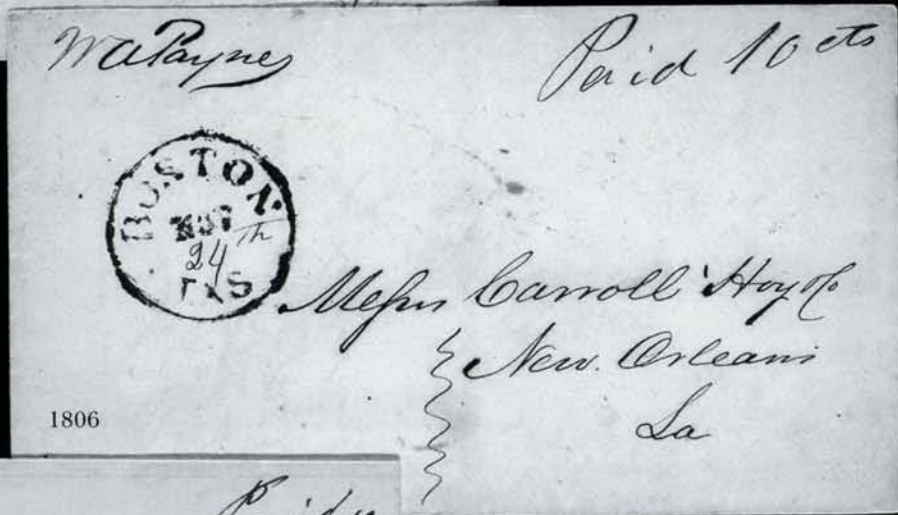 W A Payne
Paid 10 cts
BOSTON.
NOV
24th
TXS
Messrs Carroll Hoy & Co
New. Orleans
La
1806
Paid